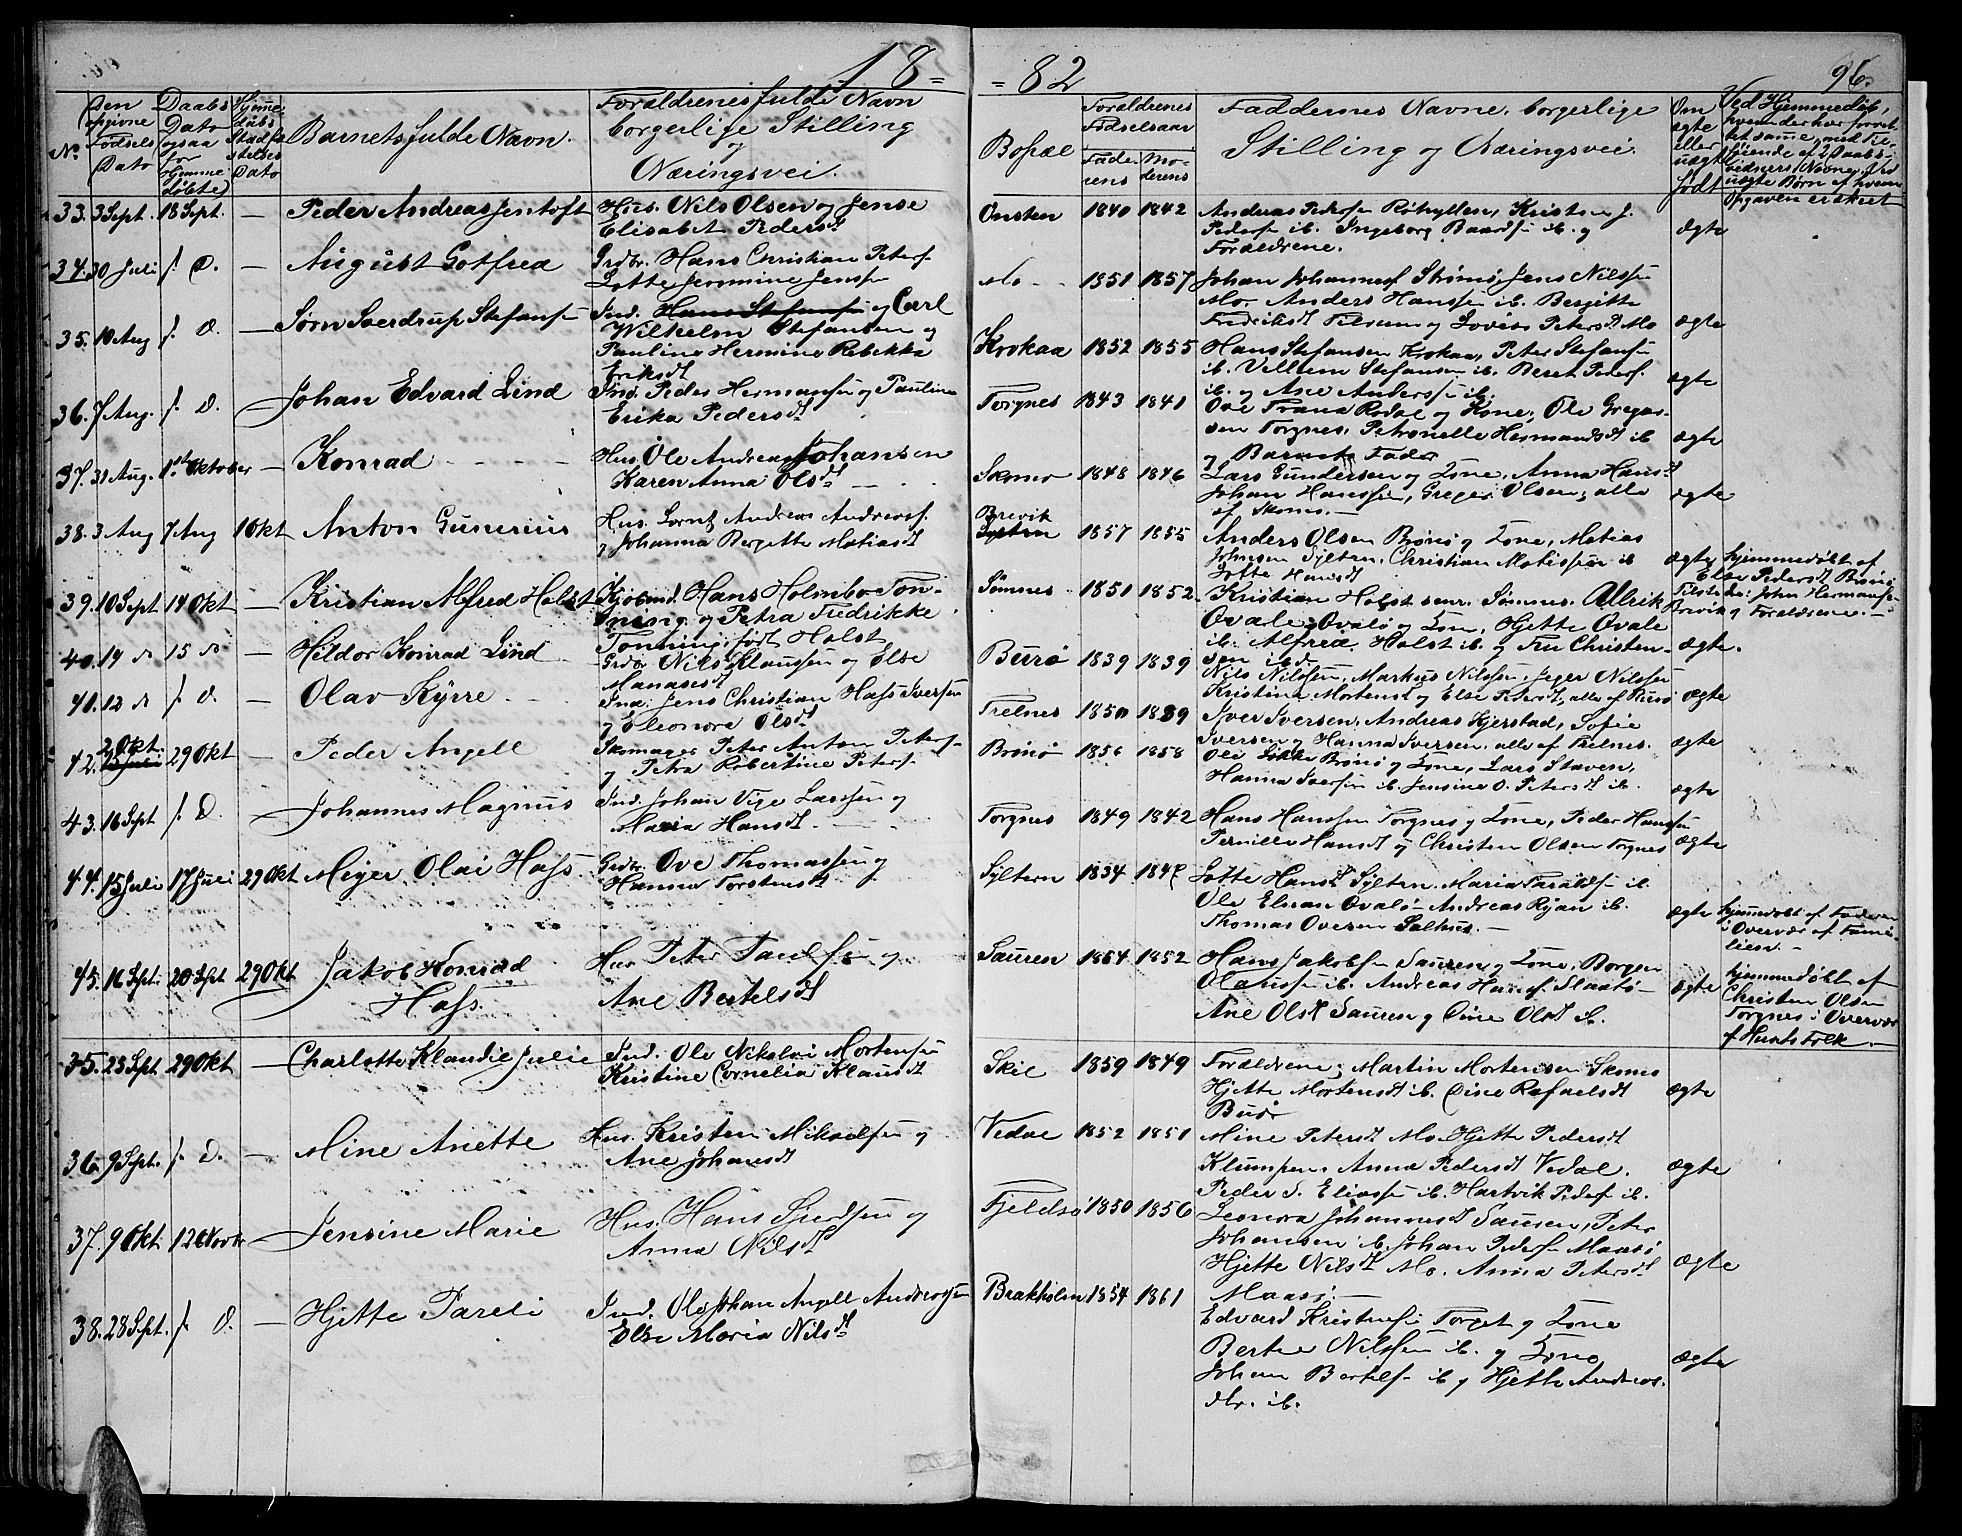 18 = = 82
96.
No.
Den opgivne Fødsels Dato
Daabs Dato ogsaa for Hjemme døbte
Hjemme daabs Stadfæstelses Dato
Barnets fulde Navn.
Forældrenes fulde Navn borgerlige Stilling og Næringsvei.
Bopæl
Forældrenes Fødselsaar
Faderens
Moderens
Faddernes Navne, borgerlige Stilling og Næringsvei.
Om ægte eller uægte født
33. 3 Sept. 18 Sept. — Peder Andreas Jentoft
Hus. Nils Olsen og Jense
Elisabet Pedersdt
Onsten 1840 1842
Ingeborg
Forældrene.
ægte
34. 30 Juli s. D. — August Gotfred
Grdbr. Hans Christian Peters
Lotte Jensen
Mo 1851 1857
Johan Johannes Strømø, Jens Nilssen
Mo. Anders Hanssen ib. Bergitte
Fredriksdt og Lovise Petersdt Mo
ægte
35. 10 Aug s. D. — Sørn Sverdrup Stefansen
Ind. Hans Stefansen og Carl
Wilhelm Stefansen og
Pauline Hermine Rebekka
Eriksdt
Krokaa 1852 1855
Hans Stefansen Krokaa, Peter Stefansen
ib. Vellum Stefansen ib. Beret Peders.
ib. og Ane Anderss ib.
ægte
36. 7 Aug. s. D. — Johan Edvard Lind
Ind. Peder Hermansen og Pauline
Erika Pedersdt
Torgnes 1843 1841
Ove Rodal og Kone, Ole Gregersen
Torgnes, Petronelle Hermansdt ib
og Barnets Fader
ægte
37. 31 Aug. 1st Oktober — Konrad
Hus. Ole Andreas Johansen
Karen Anna Olsdt
Skomo 1848 1846
Lars Gundersen og Kone, Anna Hansdt
Johan Hanssen, Greger Olsen, alle
af Skomo. —
ægte
38. 3 Aug 7 Aug 1 Okt Anton Gunerius
Hus. Lornts Andreas Andreass.
og Johanna Bergette Matiasdt
Brevik
Syltern 1857 1855
Anders Olsen Brønø og Kone, Matias
Johnsen Syltern, Christian Matissen ib
Lotte Hansdt
ægte
hjemmedøbt af
Else Pedersdt Brønø
John Hermansen
Brevik og Forældrene. —
39. 10 Sept 14 Okt — Kristian Alfred Holst
Kjøbmd. Hans Holmbo Tonning og Petra Fredrikke
Tonning, født Holst
Sømnes 1851 1852
Kristian Holst senr. Sømnes. Ullrik
Qvale, Qvalø og Kone, Hjette Qvale
ib. Alfred Holst ib. og Fru Christensen ib.
ægte.
40. 14 " 15 " — Hildor Konrad Lind
Grdbr Nils Klaussen og Else
Manasesdt
Burø 1839 1839
Nils Nilssen, Markus Nilssen, Jeger Nilssen
Kristina Mortensdt og Else Pedersdt, alle af Burø
ægte
41. 12 " s. D. — Olav Kyrre
Ind. Jens Christian Hass Iversen
og Eleonora Olsdt
Trelnes 1850 1839
Iver Iversen, Andreas Kjerstad, Sofie
Iversen og Hanna Iversen, alle af Trelnes.
ægte
42. 2 Okt. 25 Juli 29 Okt — Peder Angell
Skomager Peter Anton Peters
og Petra Robertine Peters
Brønø 1856 1858
Ole Løkke Brønø og Kone, Lars Staven,
Hanna Iversen ib. Jensine O. Petersdt ib.
ægte
43. 16 Sept s. D. — Johannes Magnus
Ind. Johan Vige Larssen og
Maria Hansdt
Torgnes 1849 1842
Hans Hanssen Torgnes og Kone, Peder Hanssen
Pernille Hansdt og Christen Olsen Torgnes
ægte
44. 15 Juli 17 Juli 29 Okt Meyer Olai Hass
Grdbr. Ove Thomassen og
Hanna Torstensdt
Syltern 1834
Lotte Hansdt Syltern. Maria ib.
Ole Qvalø Andreas Ryan ib.
Thomas Ovesen Salhus. —
ægte
hjemmedøbt af Faderen
i Overvær af Familien. —
45. 16 Sept. 20 Sept 29 Okt Jakob Konrad
Hass
Hus Peter Paulsen og
Ane Bertelsdt
Sauren 1852
Hans Jakobsen Sauren og Kone, Borger
Olaussen ib. Andreas Hans. Slaatø
Ane Olsdt Sauren og Dine Olsdt ib.
ægte
hjemmedøbt af
Christen Olsen
Torgnes i Overvær
af Husets Folk. —
35. 23 Sept. 29 Okt — Charlotte Klandie Julie
Ind. Ole Nikolai Mortensen
Kristine Cornelia Klausdt
Skei 1859 1849
Forældrene, Martin Mortensen Skomo
Hjette Mortensdt ib. Dine Rafaelsdt
Burø
ægte
36. 9 Sept. s. D. — Mine Anette
Hus. Kristen Mikaelsen og
Ane Johansdt
Vedal 1852 1851
Mine Petersdt Mo. Hjette Pedersdt
Klumpen, Anna Pedersdt Vedal.
Peder S. Eliassen ib. Hartvik Peders ib.
ægte
37. 9 Okt 12 Novbr — Jensine Marie
Hus. Hans Sjurdsen og
Anna Nilsdt
Fjeldsø 1850 1856
Leonora Johannesdt Sausen, Peter
Johansen ib. Johan Peders Maasø
Hjette Nilsdt Mo. Anna Petersdt
Maasø. —
ægte
38. 28 Sept. s. D. — Hjette Pareli
Ind. Ole Johan Angell Andreassen
Else Maria Nilsdt
Brakholm 1854 1861
Edvard Kristensen Torget og Kone
Berte Nilssen ib. og Kone
Johan Bertels ib og Hjette Andreas-
dtr. ib.
ægte